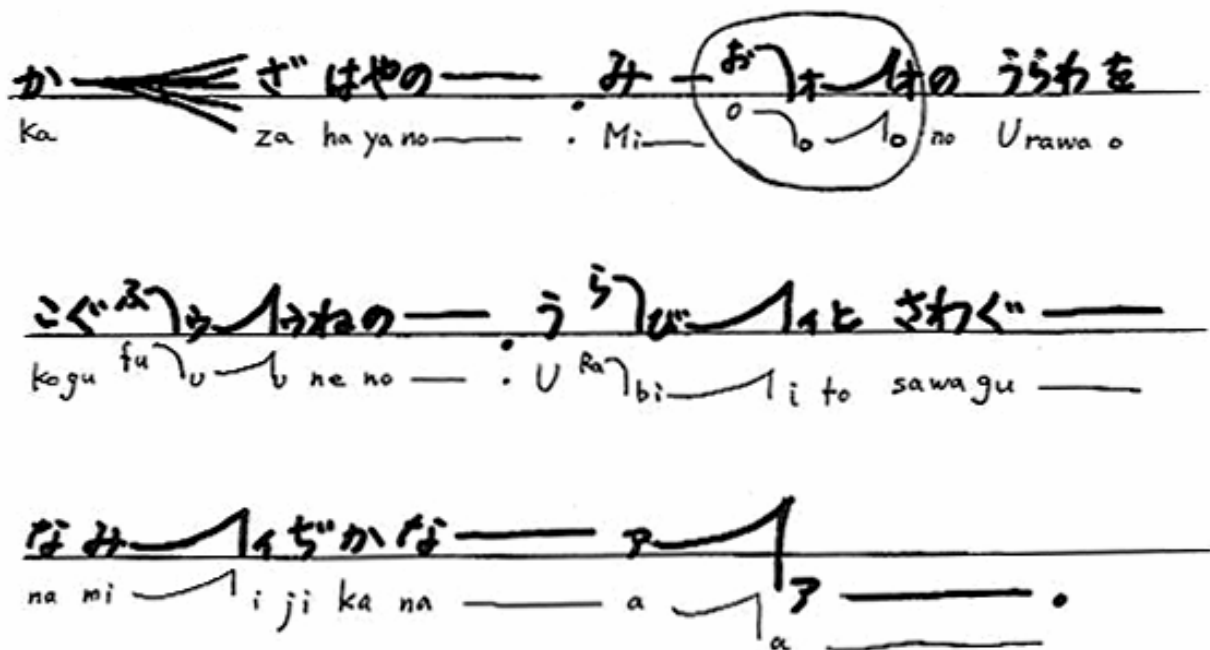 か ざ はやの—— . み— お オ オの うらわを
ka za ha ya no—— . Mi— o o o no Urawa o
こぐ ふ ゥ ゥねの—— . う ら び ィと さわぐ——
kogu fu u u ne no— . U Ra bi i to sawagu——
な み ィぢかな—— ァ ア——.
na mi i ji ka na—— a a——